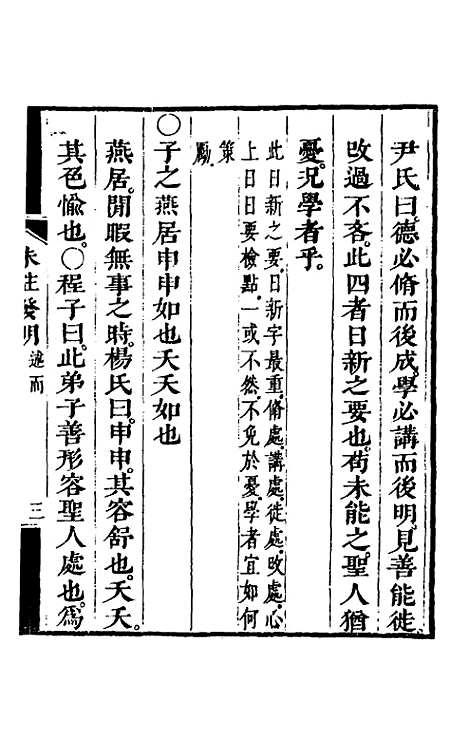 尹氏曰。德必脩而後成。學必講而後明。見善能徙。
改過不吝。此四者日新之要也。苟未能之。聖人猶
憂。況學者乎。
此日新之要。日新字最重。脩處。講處。徙處。改處。心
上日日要檢點。一或不然。不免於憂。學者宜如何
策
勵。
○子之燕居申申如也夭夭如也
燕居。閒暇無事之時。楊氏曰。申申。其容舒也。夭夭。
其色愉也。○程子曰。此弟子善形容聖人處也。爲
朱註發明 述而 三